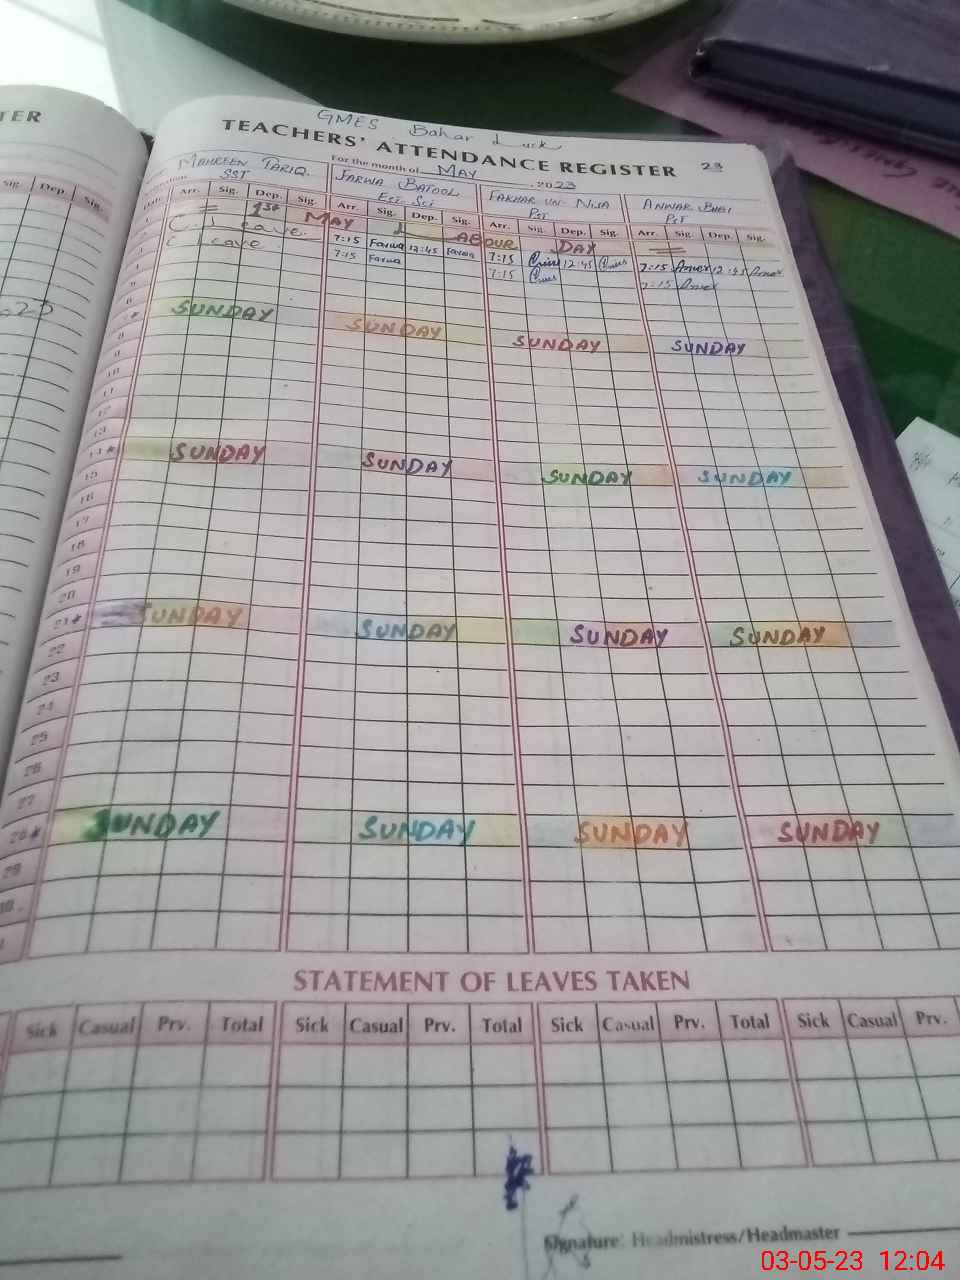 TER
GMES Bahar
TEACHERS' ATTENDANCE REGISTER 23
For the month of MAY 2023
MAHREEN TARIQ. SST
FARWA BATOOL
FAKHAR UN NISA PST
ANWAR BIBI PST
Sig. Dep. Sig.
Arr. Sig. Dep. Sig. Arr. Sig. Dep. Sig. Arr. Sig. Dep. Sig. Arr. Sig. Dep. Sig.
= 1st MAY LABOUR DAY =
C. Leave. 7:15 Farwa 12:45 Farwa 7:15 12:45 7:15 12:45
C Leave 7:15 Farwa 7:15 7:15
SUNDAY SUNDAY SUNDAY SUNDAY
8
9
10
11
12
13
14* SUNDAY SUNDAY SUNDAY SUNDAY
15
16
17
18
19
20
21* SUNDAY SUNDAY SUNDAY SUNDAY
22
23
24
25
26
27
28* SUNDAY SUNDAY SUNDAY SUNDAY
29
30
STATEMENT OF LEAVES TAKEN
Sick Casual Prv. Total Sick Casual Prv. Total Sick Casual Prv. Total Sick Casual Prv.
Signature: Headmistress/Headmaster
03-05-23 12:04